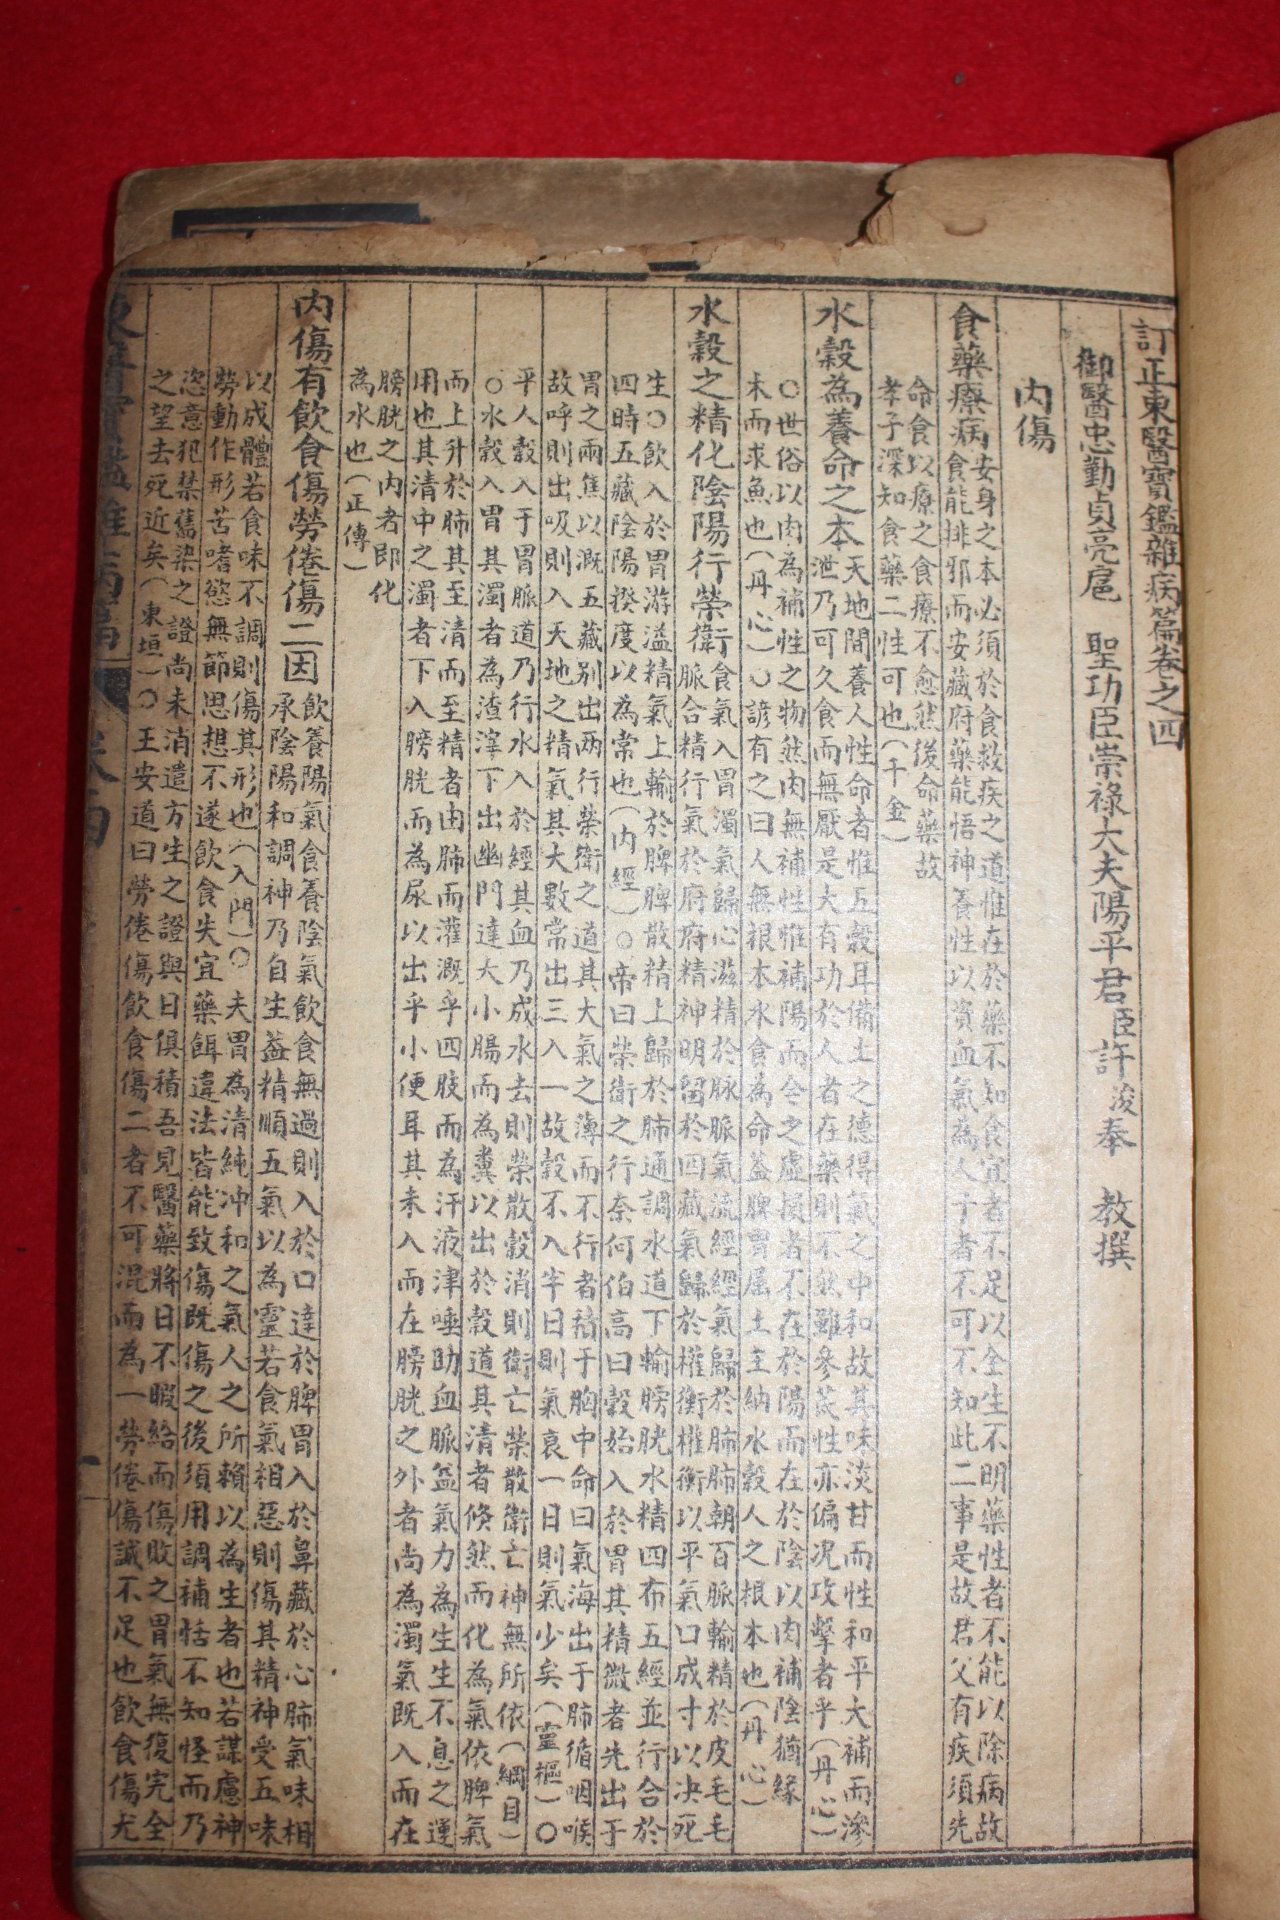 訂正東醫寶鑑雜病篇卷之四
御醫忠勤貞亮扈 聖功臣崇祿大夫陽平君臣許浚奉 教撰
內傷
食藥療病
安身之本必須於食救疾之道惟在於藥不知食宜者不足以全生不明藥性者不能以除病故
食能排邪而安藏府藥能悟神養性以資血氣為人子者不可不知此二事是故君父有疾須先
命食以療之食療不愈然後命藥故
孝子深知食藥二性可也(千金)
水穀為養命之本
天地間養人性命者惟五穀耳備土之德得氣之中和故其味淡甘而性和平大補而滲
泄乃可久食而無厭是大有功於人者在藥則不然雖參芪性亦偏况攻擊者乎(丹心)
○世俗以肉為補性之物然肉無補性惟補陽而今之虛損者不在於陽而在於陰以肉補陰猶緣
木而求魚也(丹心)○諺有之曰人無根本水食為命盖脾胃屬土主納水穀人之根本也(丹心)
水穀之精化陰陽行榮衛
食氣入胃濁氣歸心滋精於脉脈氣流經經氣歸於肺肺朝百脈輸精於皮毛毛
脈合精行氣於府府精神明留於四藏氣歸於權衡權衡以平氣口成寸以决死
生○飲入於胃游溢精氣上輸於脾脾散精上歸於肺通調水道下輸膀胱水精四布五經並行合於
四時五藏陰陽揆度以為常也(內經)○帝曰榮衛之行奈何伯高曰穀始入於胃其精微者先出于
胃之兩焦以溉五藏別出兩行榮衛之道其大氣之薄而不行者積于胸中命曰氣海出于肺循咽喉
故呼則出吸則入天地之精氣其大數常出三入一故穀不入半日則氣衰一日則氣少矣(靈樞)○
平人穀入于胃脈道乃行水入於經其血乃成水去則榮散穀消則衛亡榮散衛亡神無所依(綱目)
○水穀入胃其濁者為渣滓下出幽門達大小腸而為糞以出於穀道其清者倐然而化為氣依脾氣
而上升於肺其至清而至精者由肺而灌溉乎四肢而為汗液津唾助血脈益氣力為生生不息之運
用也其清中之濁者下入膀胱而為尿以出乎小便耳其未入而在膀胱之外者尚為濁氣既入而在
膀胱之內者即化
為水也(正傳)
內傷有飲食傷勞倦傷二因
飲養陽氣食養陰氣飲食無過則入於口達於脾胃入於鼻藏於心肺氣味相
承陰陽和調神乃自生盖精順五氣以為靈若食氣相惡則傷其精神受五味
以成體若食味不調則傷其形也(入門)○夫胃為清純冲和之氣人之所賴以為生者也若謀慮神
勞動作形苦嗜慾無節思想不遂飲食失宜藥餌違法皆能致傷既傷之後須用調補恬不知怪而乃
恣意犯禁舊染之證尚未消遣方生之證與日俱積吾見醫藥將日不暇給而傷敗之胃氣無復完全
之望去死近矣(東垣)○王安道曰勞倦傷飲食傷二者不可混而為一勞倦傷誠不足也飲食傷尤